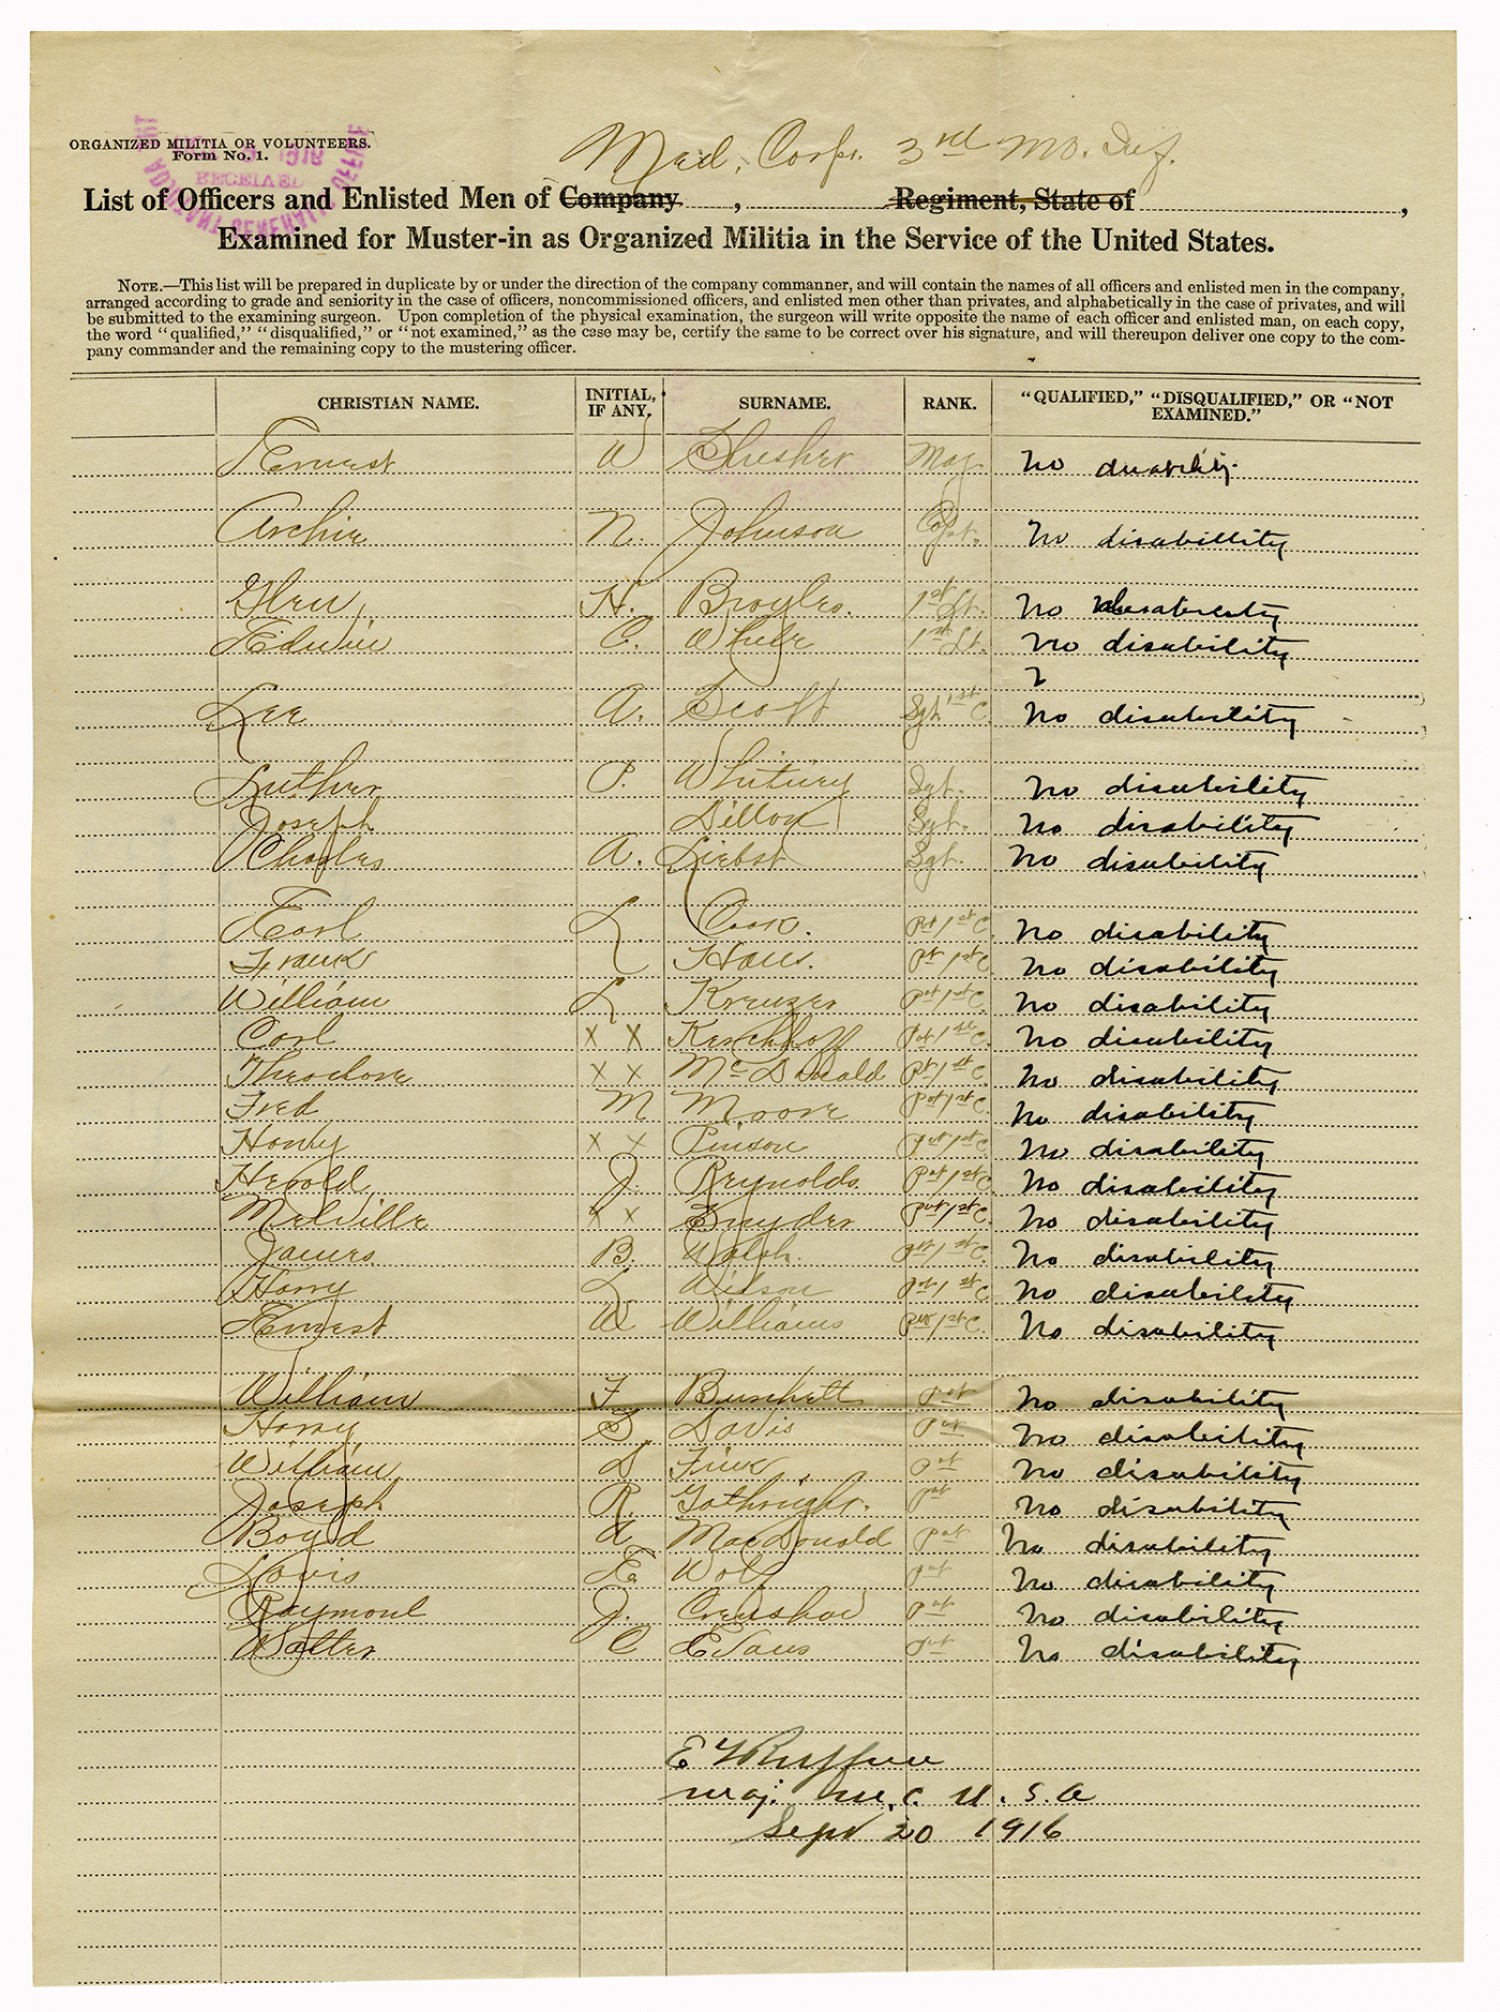 ORGANIZED MILITIA OR VOLUNTEERS.
Form No. 1.
RECEIVED
ADJUTANT GENERAL
Med. Corps. 3rd Mo. Inf.
List of Officers and Enlisted Men of Company , Regiment, State of ,
Examined for Muster-in as Organized Militia in the Service of the United States.
NOTE.—This list will be prepared in duplicate by or under the direction of the company commanner, and will contain the names of all officers and enlisted men in the company,
arranged according to grade and seniority in the case of officers, noncommissioned officers, and enlisted men other than privates, and alphabetically in the case of privates, and will
be submitted to the examining surgeon. Upon completion of the physical examination, the surgeon will write opposite the name of each officer and enlisted man, on each copy,
the word "qualified," "disqualified," or "not examined," as the case may be, certify the same to be correct over his signature, and will thereupon deliver one copy to the com-
pany commander and the remaining copy to the mustering officer.
CHRISTIAN NAME. INITIAL, IF ANY. SURNAME. RANK. "QUALIFIED," "DISQUALIFIED," OR "NOT EXAMINED."
Ernest W Maj. No disability.
Archie N. Johnson Capt. No disabillity
Glen H. Broyles. 1st Lt. No
Edwin C. White 1st Lt. No disability
Lee A. Scott Sgt 1st C. No disability
Luther P. Whitney Sgt. No disability
Joseph Dillon Sgt. No disability
Charles A. Liebst Sgt. No disability
Earl L. Cook. Pvt 1st C. No disability
Frank L Haus. Pvt 1st C No disability
William L Kreuzer Pvt 1st C No disability
Carl X X Kerchhoff Pvt 1st C. No disability
Theodore X X McDonald Pvt 1st C. No disability
Fred M Moore Pvt 1st C. No disability
Henry X X Pinson Pvt 1st C. No disability
Herold J. Reynolds. Pvt 1st C No disability
Melville X X Snyder Pvt 1st C. No disability
James. B. Walsh. Pvt 1st C. No disability
Harry L Wilson Pvt 1st C No disability
Ernest W Williams Pvt 1st C. No disability
William F Burchett Pvt No disability
Harry S. Davis Pvt No disability
William D Fink Pvt No disability
Joseph R. Gathright. Pvt No disability
Boyd A MacDonald Pvt No disability
Louis E Wolf Pvt No disability
Raymond J. Crenshaw Pvt No disability
Walter C Evans Pvt No disability
Maj. M.C. U.S.A
Sept 20 1916